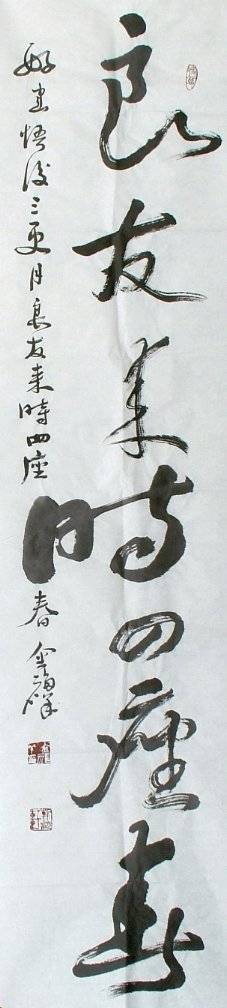 良友来時四座春
好書悟後三更月良友来時四座春